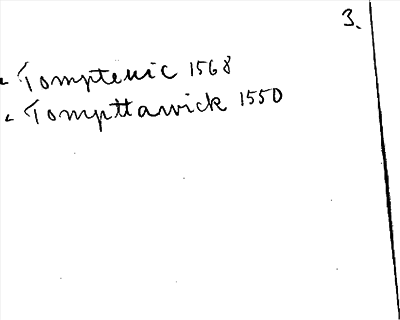 3.
" Tomptewic 1568
" Tompttawick 1550